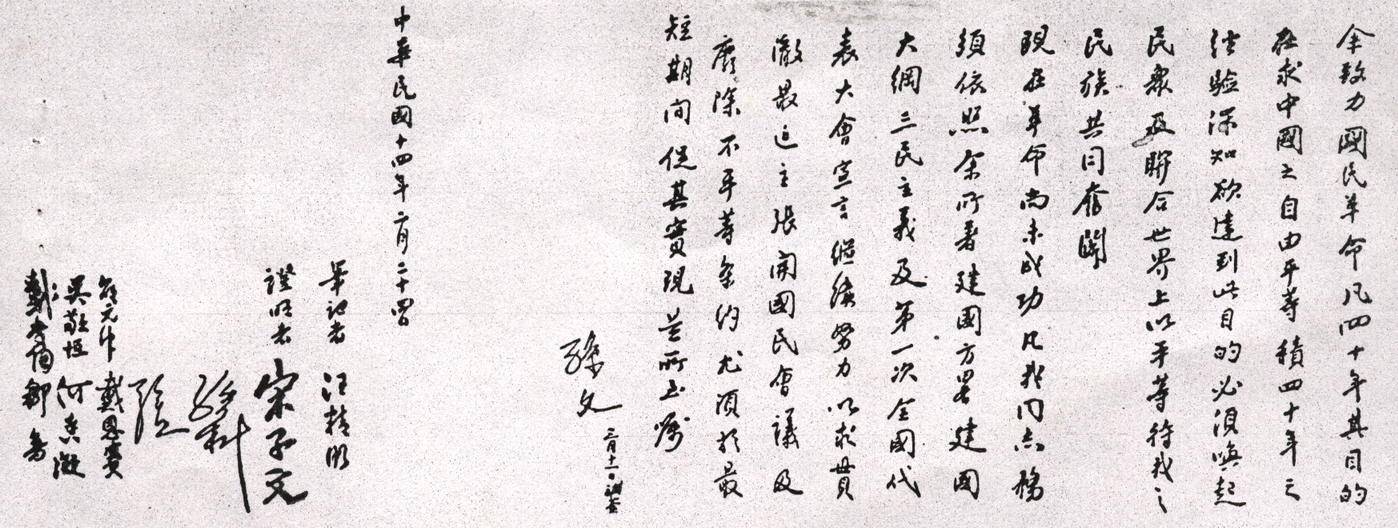 余致力國民革命凡四十年其目的
在求中國之自由平等積四十年之
經驗深知欲達到此目的必須喚起
民眾及聯合世界上以平等待我之
民族共同奮鬪
現在革命尚未成功凡我同志務
須依照余所著建國方畧建國
大綱三民主義及第一次全國代
表大會宣言繼續努力以求貫
澈最近主張開國民會議及
廢除不平等條約尤須於最
短期間促其實現是所至囑
孫文 三月十一日補簽
中華民國十四年二月二十四日
筆記者 汪精衛
證明者 宋子文
孫科
孔
邵元冲 戴恩賽
吳敬恆 何香凝
戴季陶 鄒魯